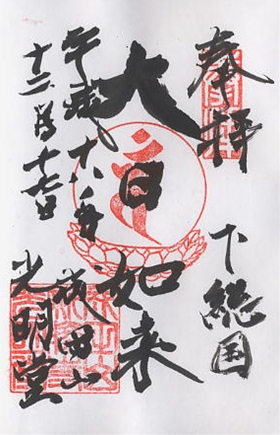 奉拝
下総国
大日如来
成田山
光明堂
平成十八年
十二月十七日